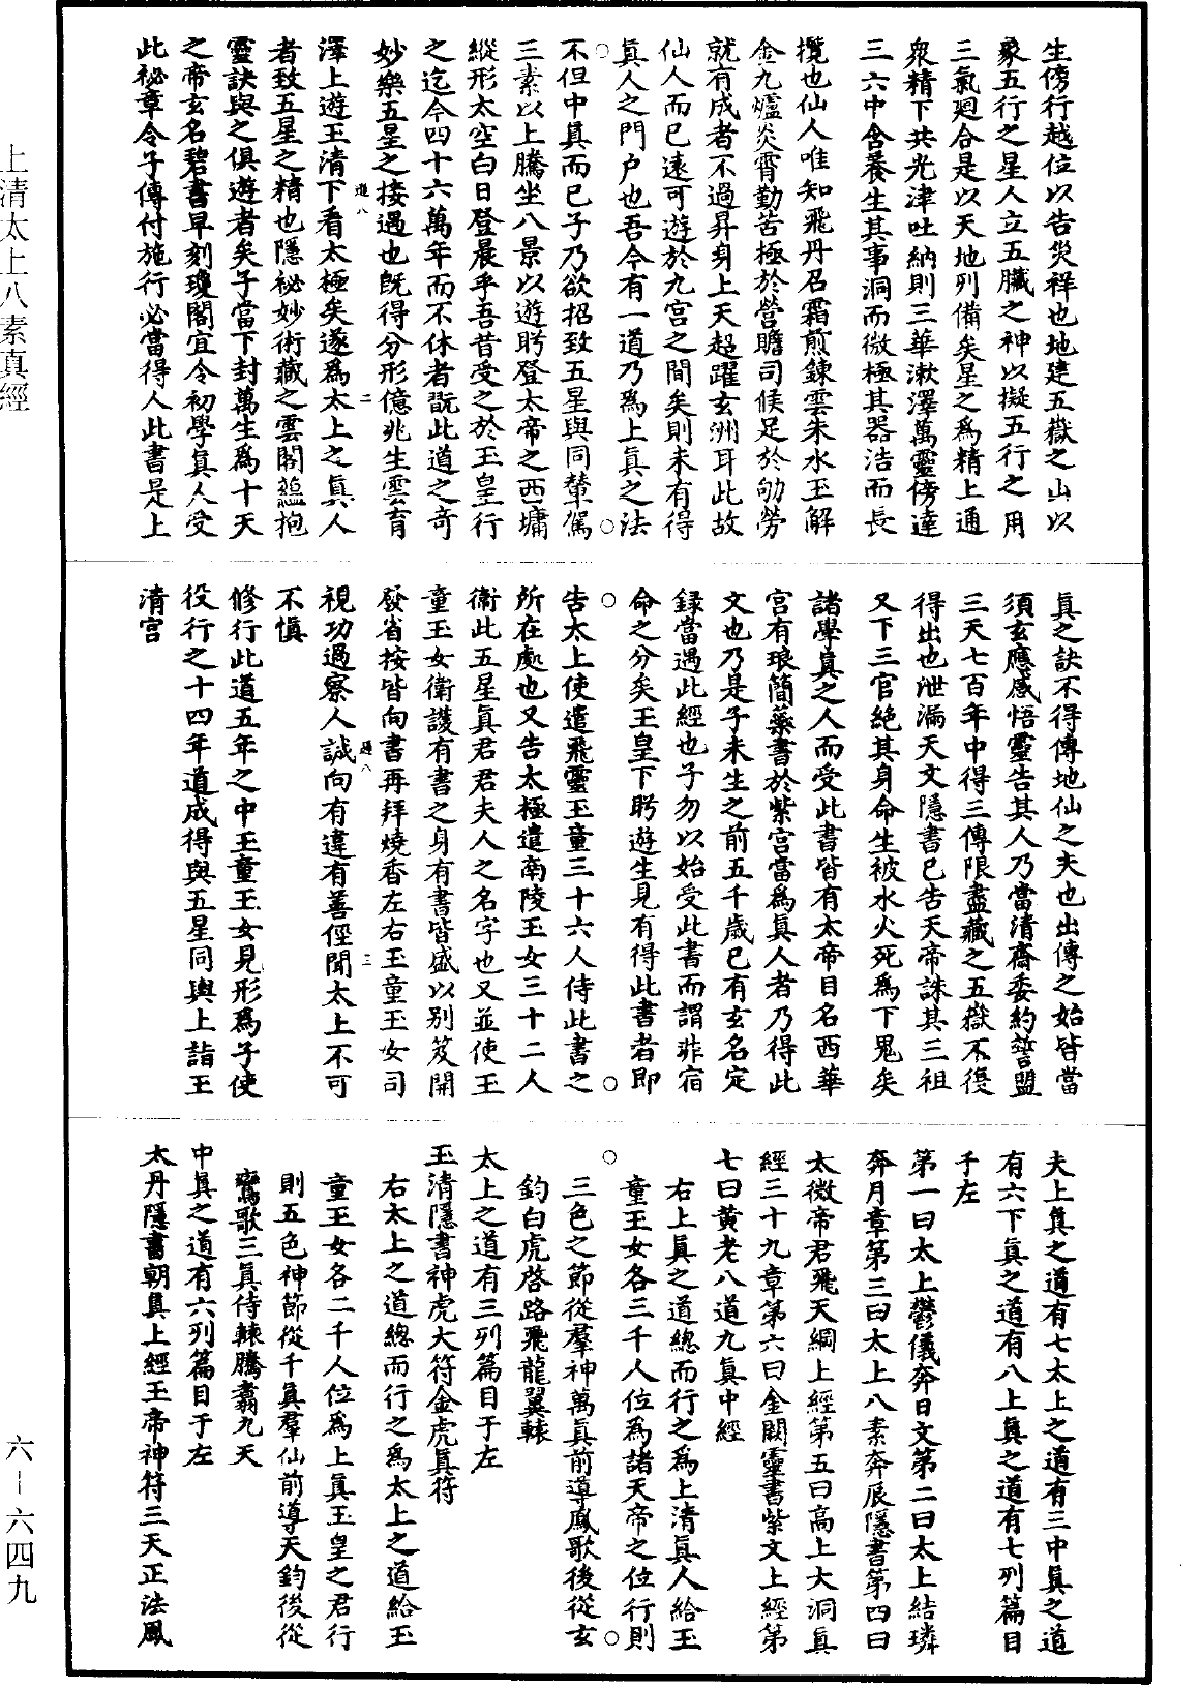 生傍行越位以告災祥也地建五嶽之山以
象五行之星人立五臟之神以擬五行之用
三氣廻合是以天地列備矣星之爲精上通
衆精下共光津吐納則三華漱澤萬靈傍達
三六中含養生其事洞而微極其器浩而長
攬也仙人唯知飛丹召霜煎鍊雲朱水玉解
金九爐炎霄勤苦極於營瞻司候足於劬勞
就有成者不過昇身上天超躍玄洲耳此故
仙人而已遠可遊於九宮之間矣則未有得
眞人之門户也吾今有一道乃爲上眞之法
不但中眞而已子乃欲招致五星與同輦駕
三素以上騰坐八景以遊眄登太帝之西墉
縱形太空白日登晨乎吾昔受之於玉皇行
之迄今四十六萬年而不休者既此道之奇
妙樂五星之接遇也既得分形億兆生雲育
道八 二
澤上遊玉清下看太極矣遂爲太上之眞人
者致五星之精也隱祕妙術藏之雲閣蘊抱
靈訣與之俱遊者矣子當下封萬生爲十天
之帝玄名碧書早刻瓊閣宜令初學眞人受
此祕章令子傳付施行必當得人此書是上
眞之訣不得傳地仙之夫也出傳之始皆當
須玄應感悟靈告其人乃當清齋委約誓盟
三天七百年中得三傳限盡藏之五嶽不復
得出也泄漏天文隱書已告天帝誅其三祖
又下三官絶其身命生被水火死爲下鬼矣
諸學眞之人而受此書皆有太帝目名西華
宮有琅簡蘂書於紫宮當爲眞人者乃得此
文也乃是子未生之前五千歲已有玄名定
録當遇此經也子勿以始受此書而謂非宿
命之分矣玉皇下眄遊生見有得此書者即
告太上使遣飛靈玉童三十六人侍此書之
所在處也又告太極遣南陵玉女三十二人
衞此五星眞君君夫人之名字也又並使玉
童玉女衞護有書之身有書皆盛以别笈開
發省按皆向書再拜燒香左右玉童玉女司
道八 三
視功過察人誠向有違有善徑聞太上不可
不愼
修行此道五年之中玉童玉女見形爲子使
役行之十四年道成得與五星同輿上詣玉
清宮
夫上眞之道有七太上之道有三中眞之道
有六下眞之道有八上眞之道有七列篇目
于左
第一曰太上鬱儀奔日文第二曰太上結璘
奔月章第三曰太上八素奔辰隱書第四曰
太微帝君飛天綱上經第五曰高上大洞眞
經三十九章第六曰金闕靈書紫文上經第
七曰黄老八道九眞中經
右上眞之道總而行之爲上清眞人給玉
童玉女各三千人位爲諸天帝之位行則
三色之節從羣神萬眞前導鳳歌後從玄
鈞白虎啓路飛龍翼轅
太上之道有三列篇目于左
玉清隱書神虎大符金虎眞符
右太上之道總而行之爲太上之道給玉
童玉女各二千人位爲上眞玉皇之君行
則五色神節從千眞羣仙前導天鈞後從
鸞歌三眞侍轅騰翥九天
中眞之道有六列篇目于左
太丹隱書朝眞上經玉帝神符三天正法鳳
上清太上八素真經
六－六四九